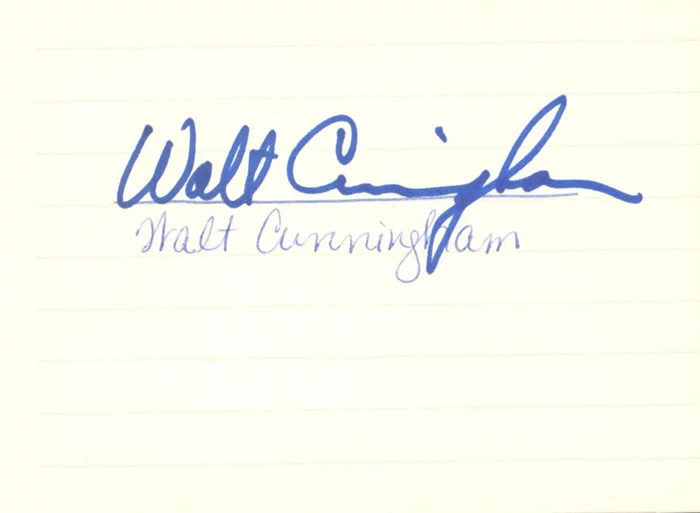 Walt Cunningham
Walt Cunningham